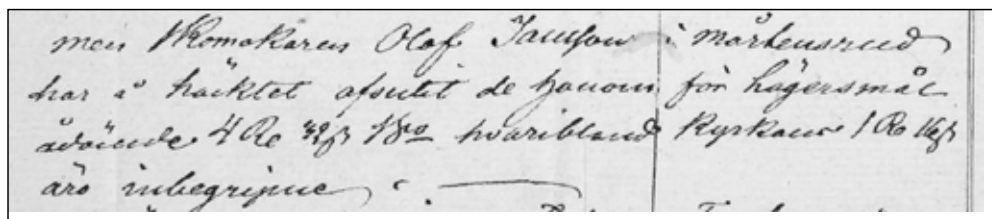 men Skomakaren Olof Jansson i Mårtensrud
har å häcktet afsutit de honom för lägersmål
ådömde 4 Rd 32 s hvaribland Kyrkans 1 Rd 16 s
äro inbegripne.